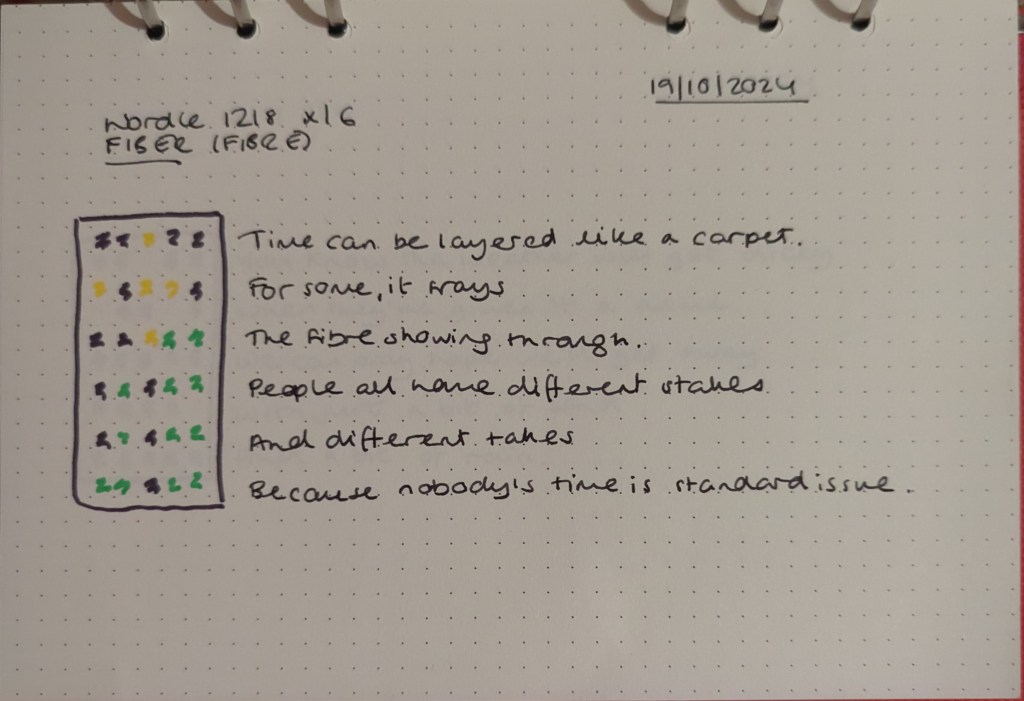 19/10/2024
Wordle 1218 x/6
FIBER (FIBRE)
Time can be layered like a carpet.
For some, it frays
The fibre showing through.
People all have different stakes
And different takes
Because nobody's time is standard issue.